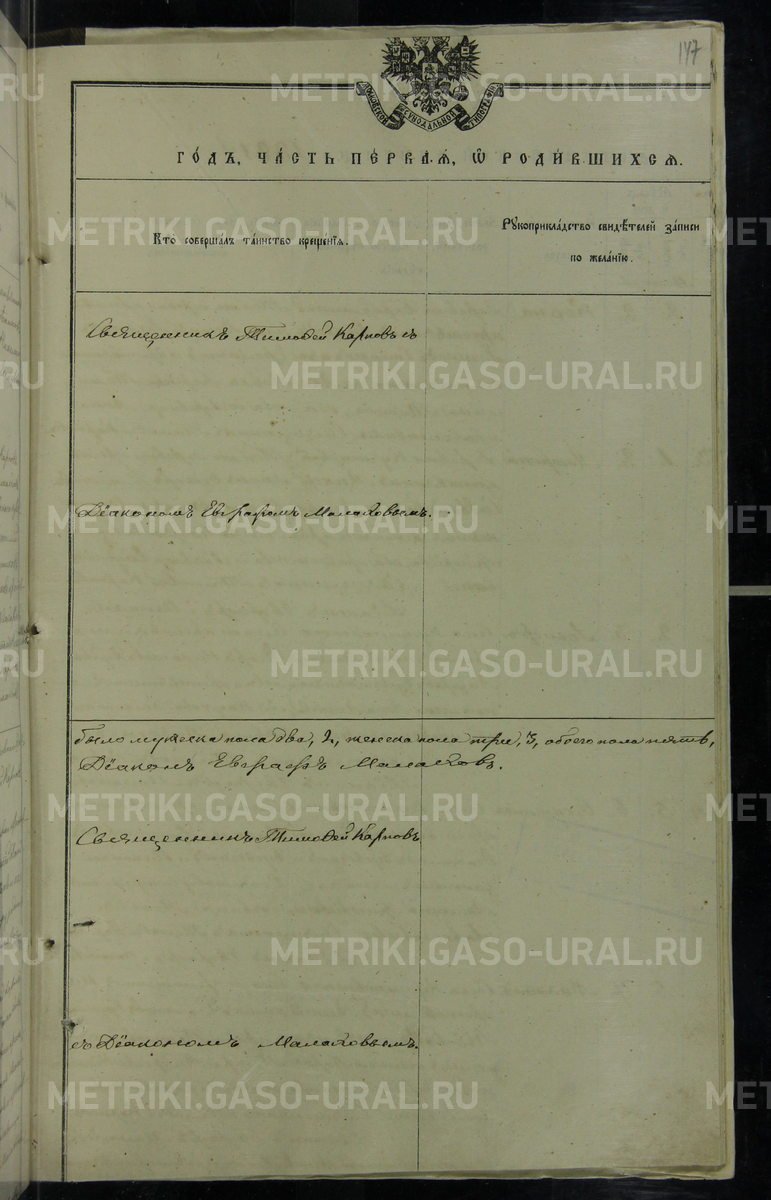 147
МОСКОВСКОЙ СѴНОДАЛЬНОЙ ТИПОГРАФІИ
ГО́ДЪ, ЧА́СТЬ ПЕ́РВАѦ, Ѡ҆ РОДИ́ВШИХСѦ.
Кто̀ соверша́лъ та́инство креще́нїѧ.
Рꙋкоприкла́дство свидѣ́телей за́писи
по жела́нїю.
Священникъ Тимофей Карповъ съ
Діакономъ Евграфомъ Малаховымъ.
было мужеска пола два, 2, женска пола три, 3, обоего пола пять,
Діаконъ Евграфъ Малаховъ.
Священникъ Тимофей Карповъ
съ Діакономъ Малаховымъ.
METRIKI.GASO-URAL.RU